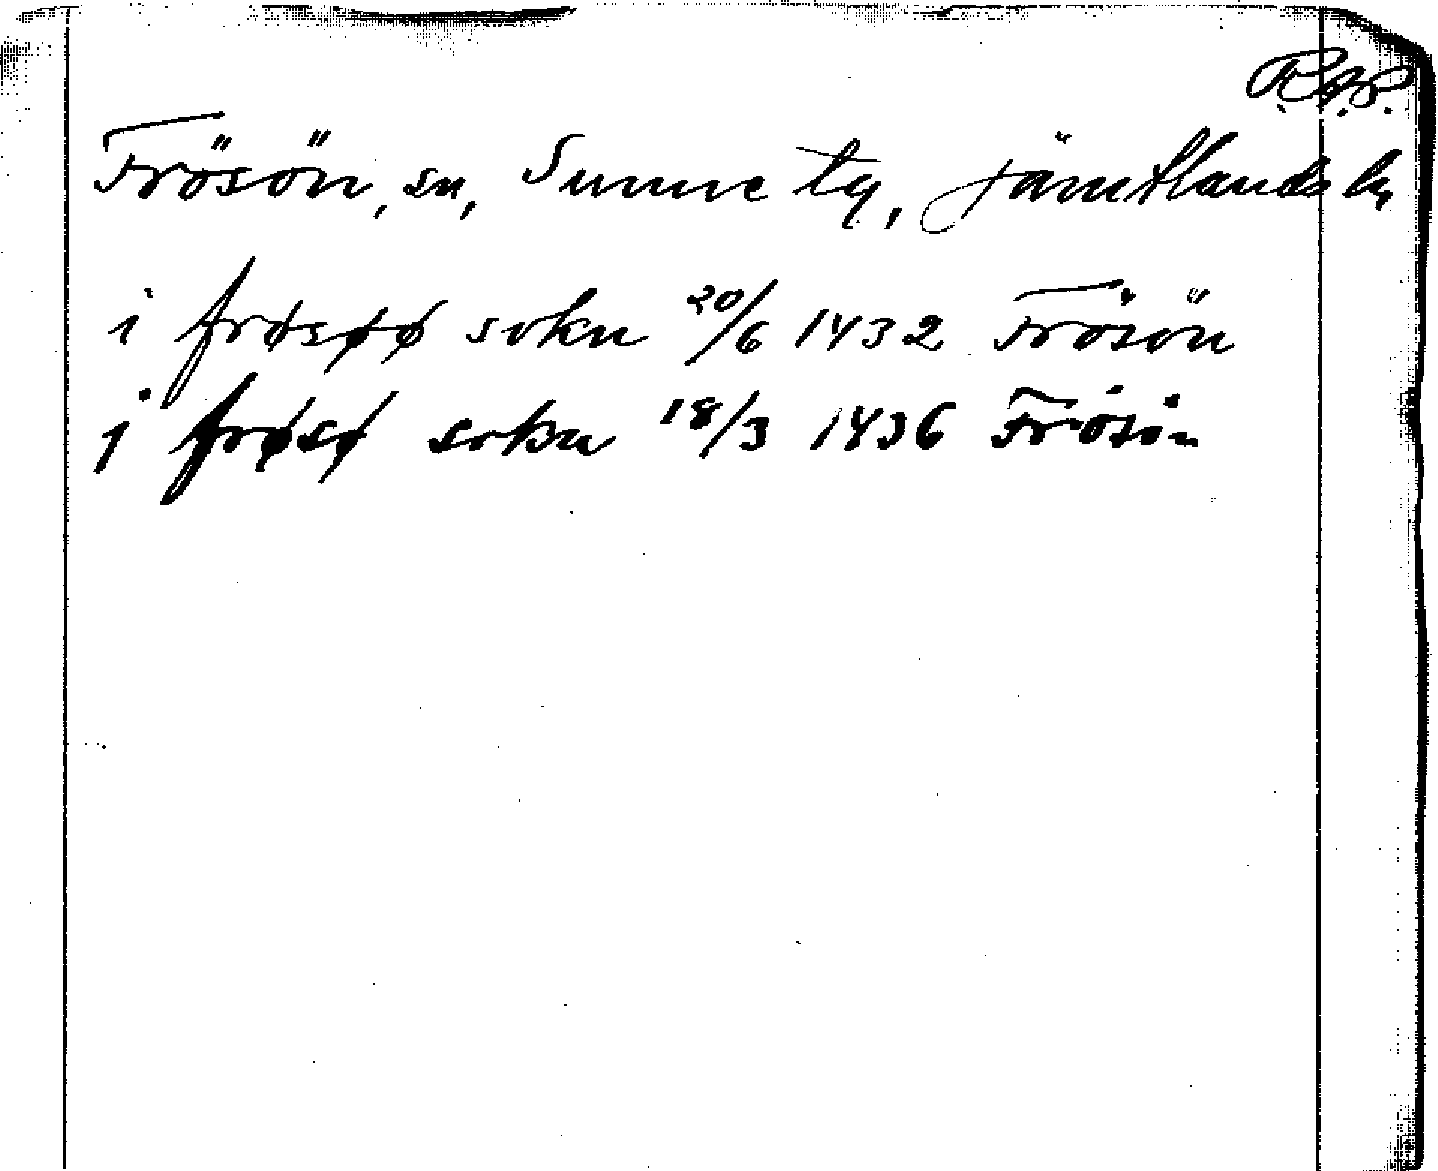 R.A.P.
Frösön, sn, Sunne tg, Jämtlands ln
i frøsøø sokn 20/6 1432 Frösön
j frøsø sokn 18/3 1436 Frösön